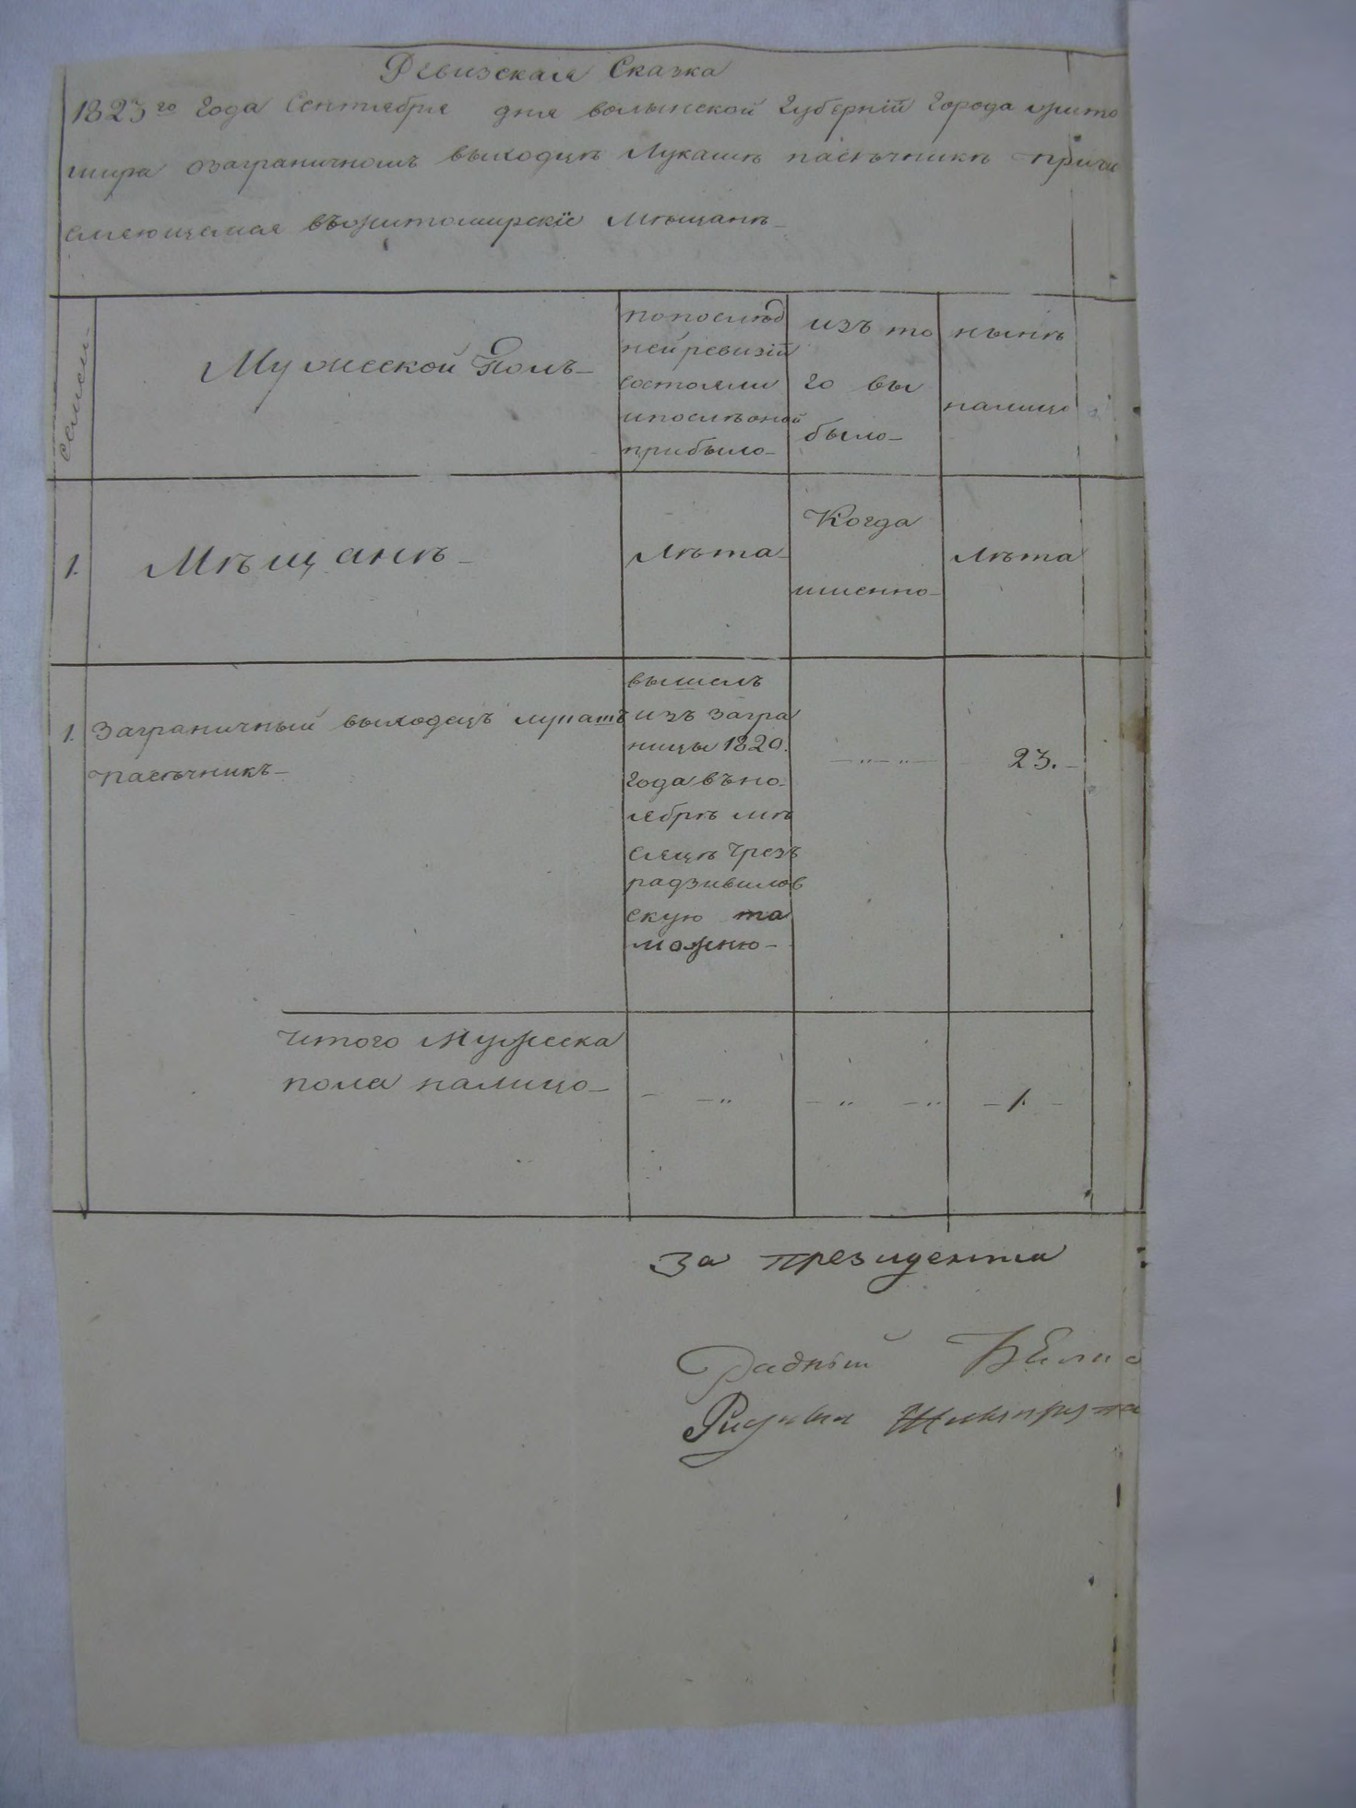 Ревизская Сказка
1823го Года Сентября дня волынской Губерніи Города жито
мира озаграничномъ выходцѣ Лукашѣ пасѣчникѣ причи
сляющемся въжитомирскіе мѣщанѣ
семьи
Мужеской Полъ
попослѣд
ней ревизіи
состояли
ипослѣоной
прибыло
изъ то
го вы
было
нынѣ
налицо
1. Мѣщанѣ
лѣта
Когда
именно
лѣта
1. Заграничный выходецъ лукашъ
пасѣчникъ
вышелъ
изъ загра
ницы 1820.
года въно
ябрѣ мѣ
сяцѣ чрезъ
радзивилов
скую та
можню
23.
Итого Мужеска
пола налицо
1.
За президента
Радный